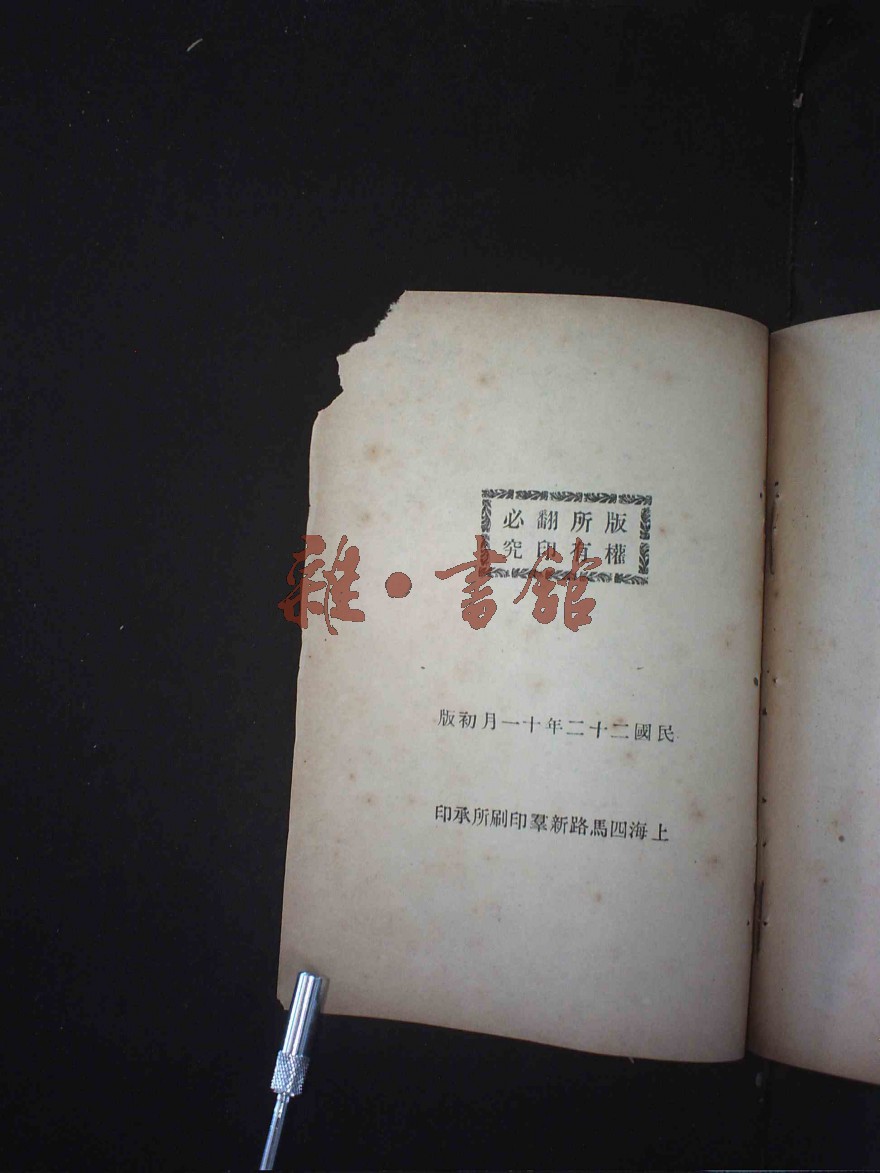 版權所有翻印必究
雜·書館
民國二十二年十一月初版
上海四馬路新羣印刷所承印